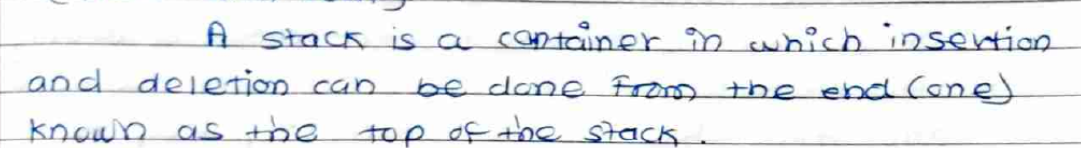 A stack is a container in which insertion
and deletion can be done from the end (one)
known as the top of the stack.